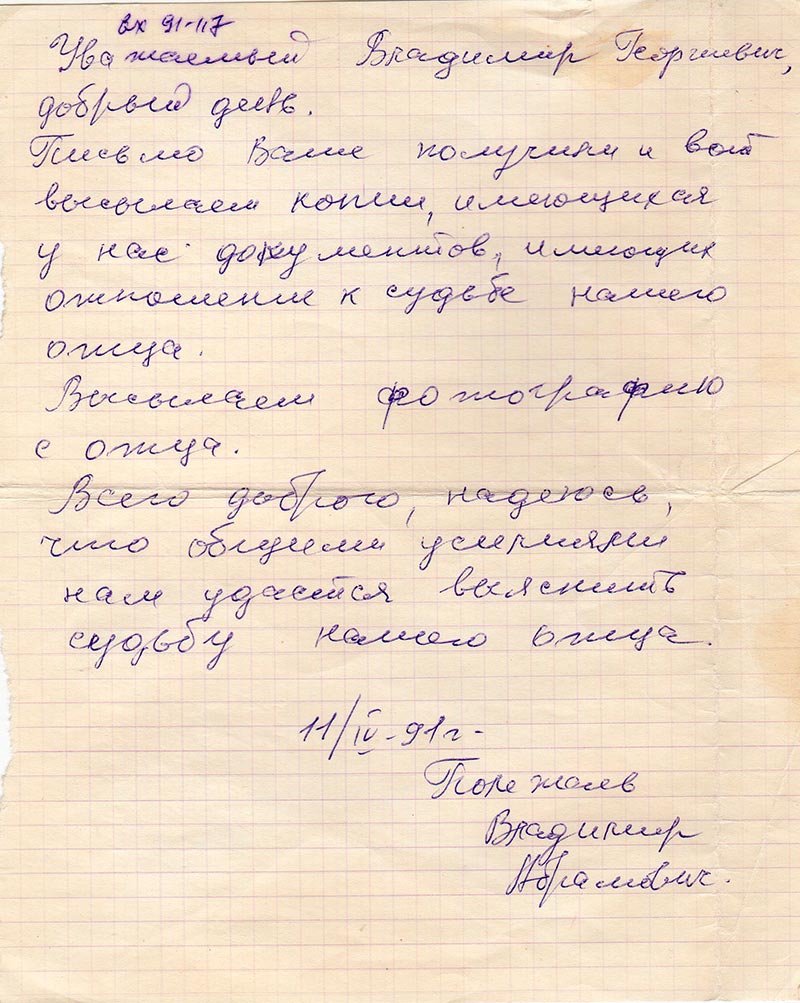 вх 91-117
Уважаемый Владимир Георгиевич,
добрый день.
Письмо Ваше получили и вот
высылаем копии, имеющихся
у нас документов, имеющих
отношение к судьбе нашего
отца.
Высылаем фотографию
с отца.
Всего доброго, надеюсь,
что общими усилиями
нам удастся выяснить
судьбу нашего отца.
11/IV-91г-
Владимир
Абрамович.